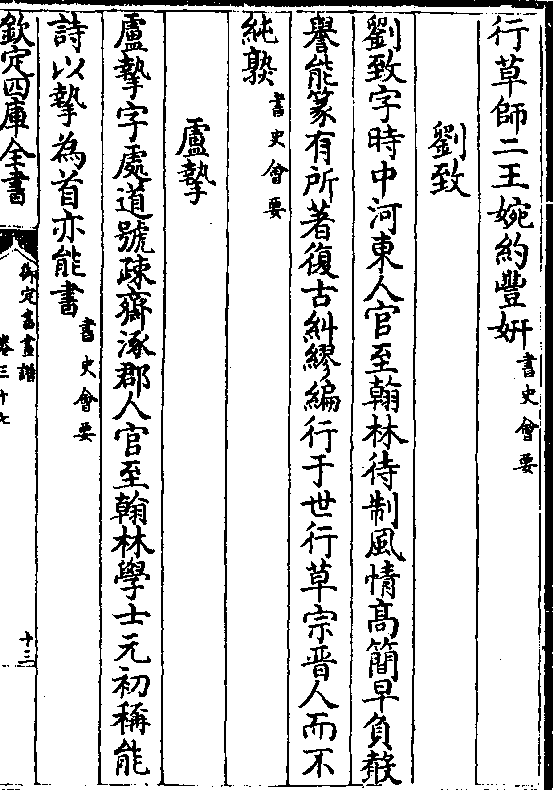 行草師二王婉約豐妍書史會要
劉致
劉致字時中河東人官至翰林待制風情高簡早負聲
譽能篆有所著復古糾繆編行于世行草宗晉人而不
純熟書史會要
盧摯
盧摯字處道號疎齋涿郡人官至翰林學士元初稱能
詩以摯為首亦能書書史會要
欽定四庫全書
御定書畫譜
卷三十七
十三